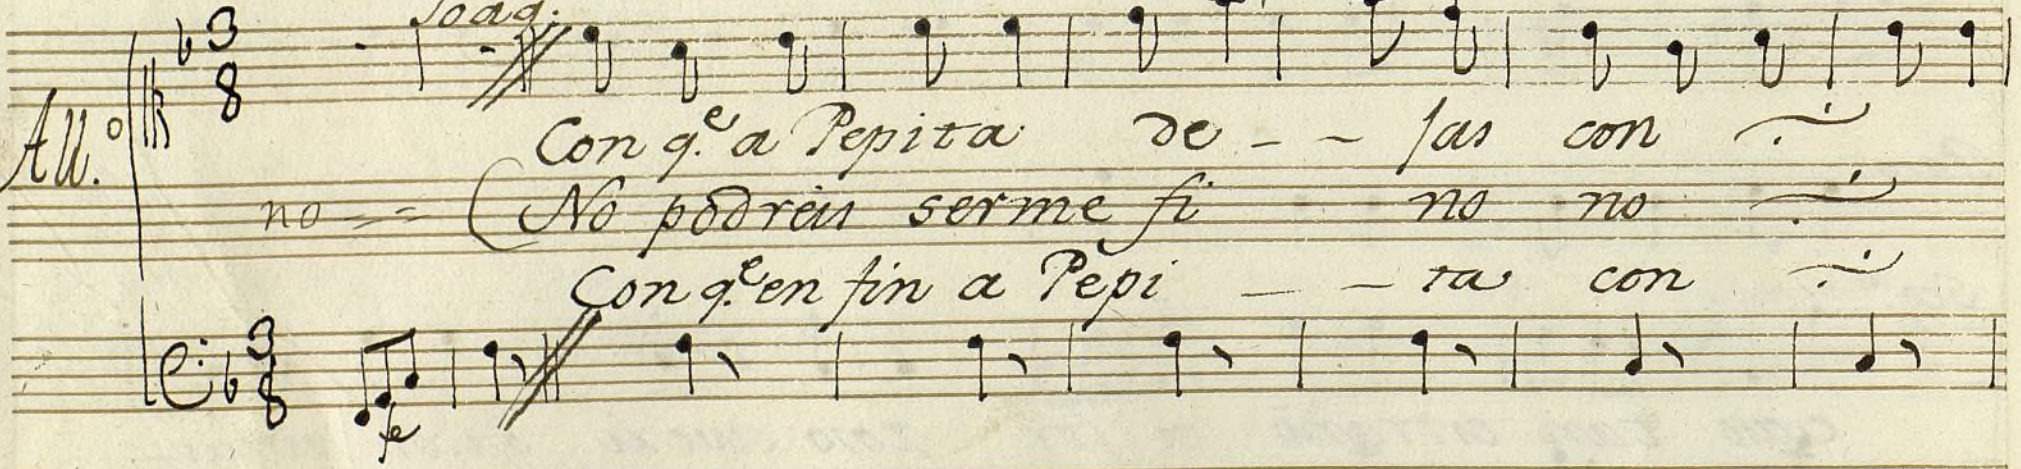 Joaq.
3
8
All.º
Con q.e a Pepita de - - jas con
no == (No podreis serme fi no no
Con q.e en fin a Pepi - - ta con
3
8